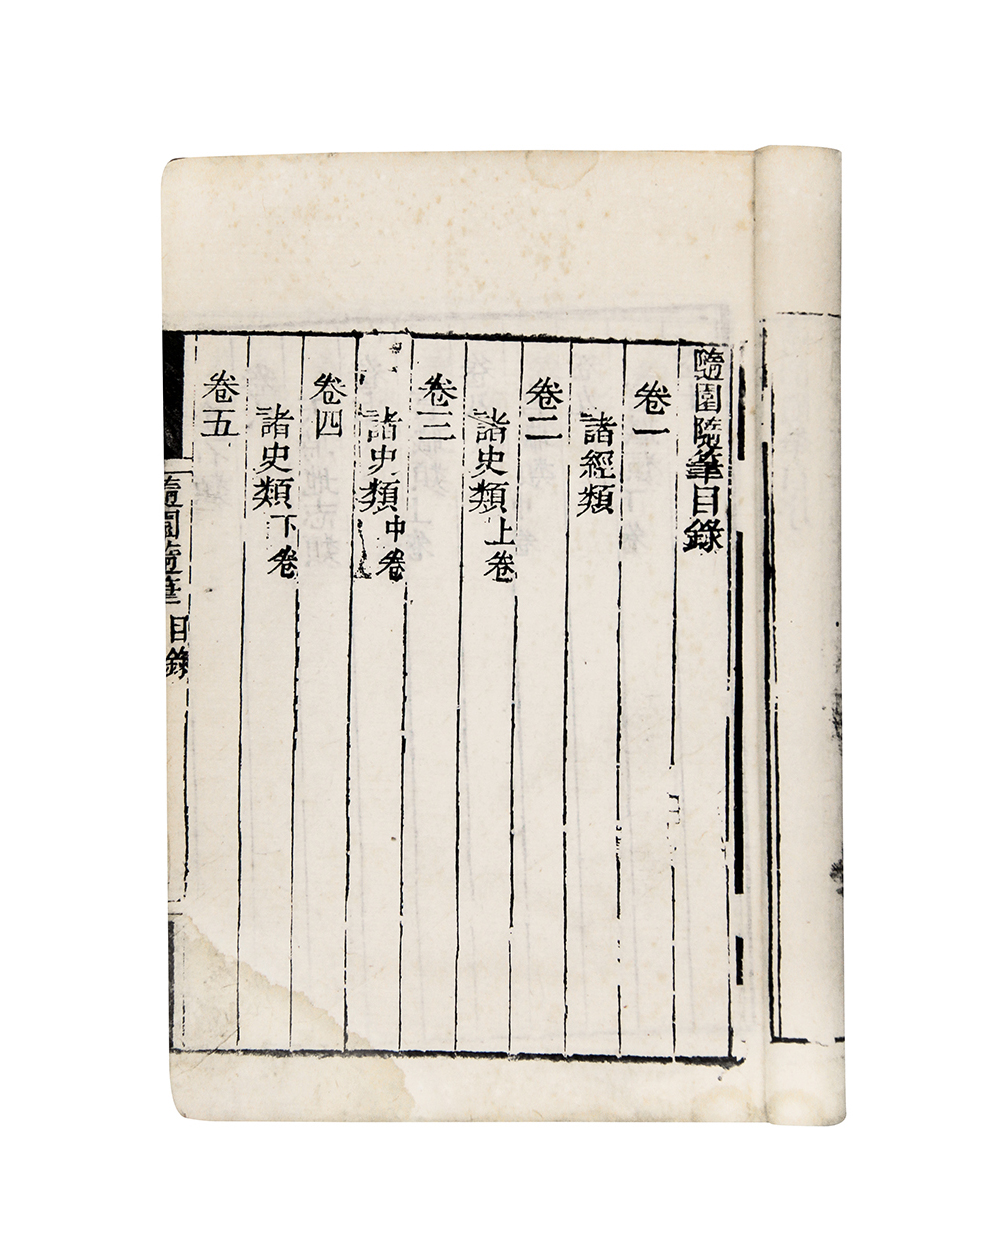 隨園隨筆目錄
卷一
諸經類
卷二
諸史類上卷
卷三
諸史類中卷
卷四
諸史類下卷
卷五
隨園隨筆 目錄